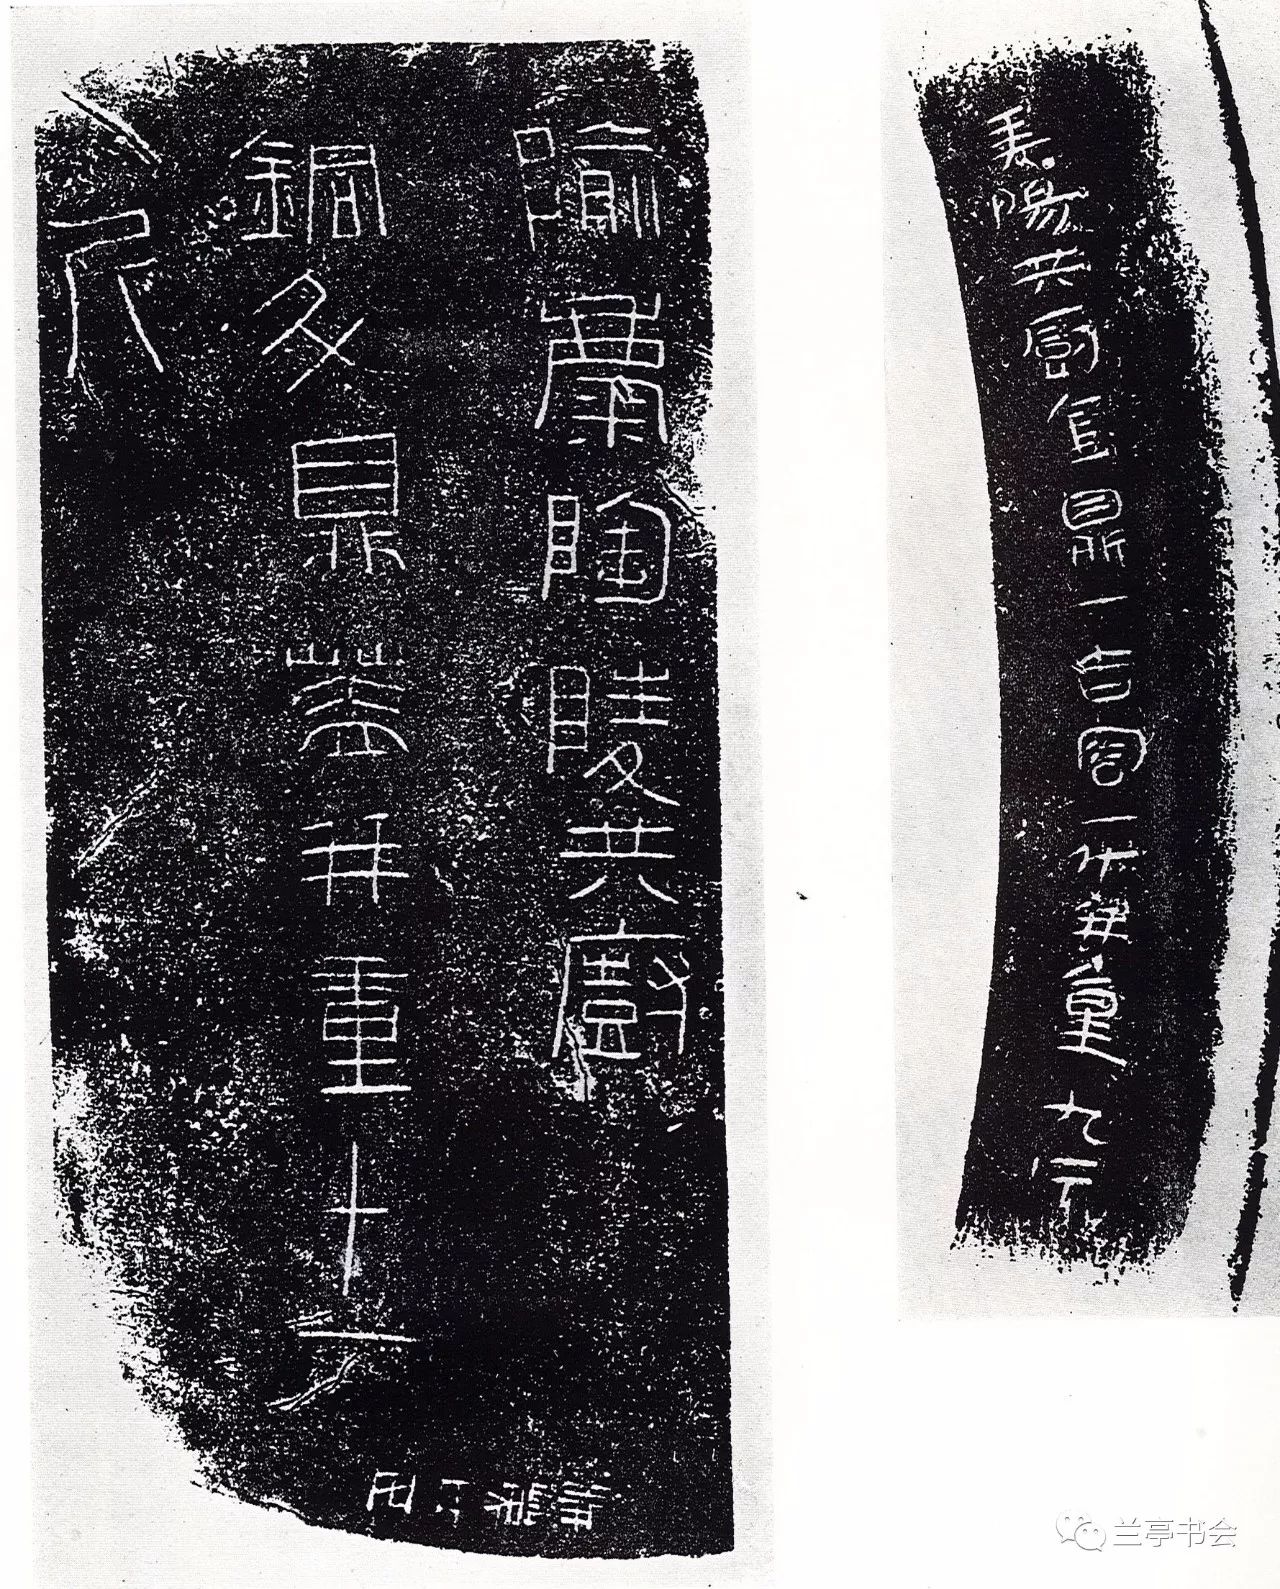 美陽共廚金鼎一合容一斗并重九斤
隃麋陶陵共廚
銅斗鼎蓋并重十一
斤
兰亭书会